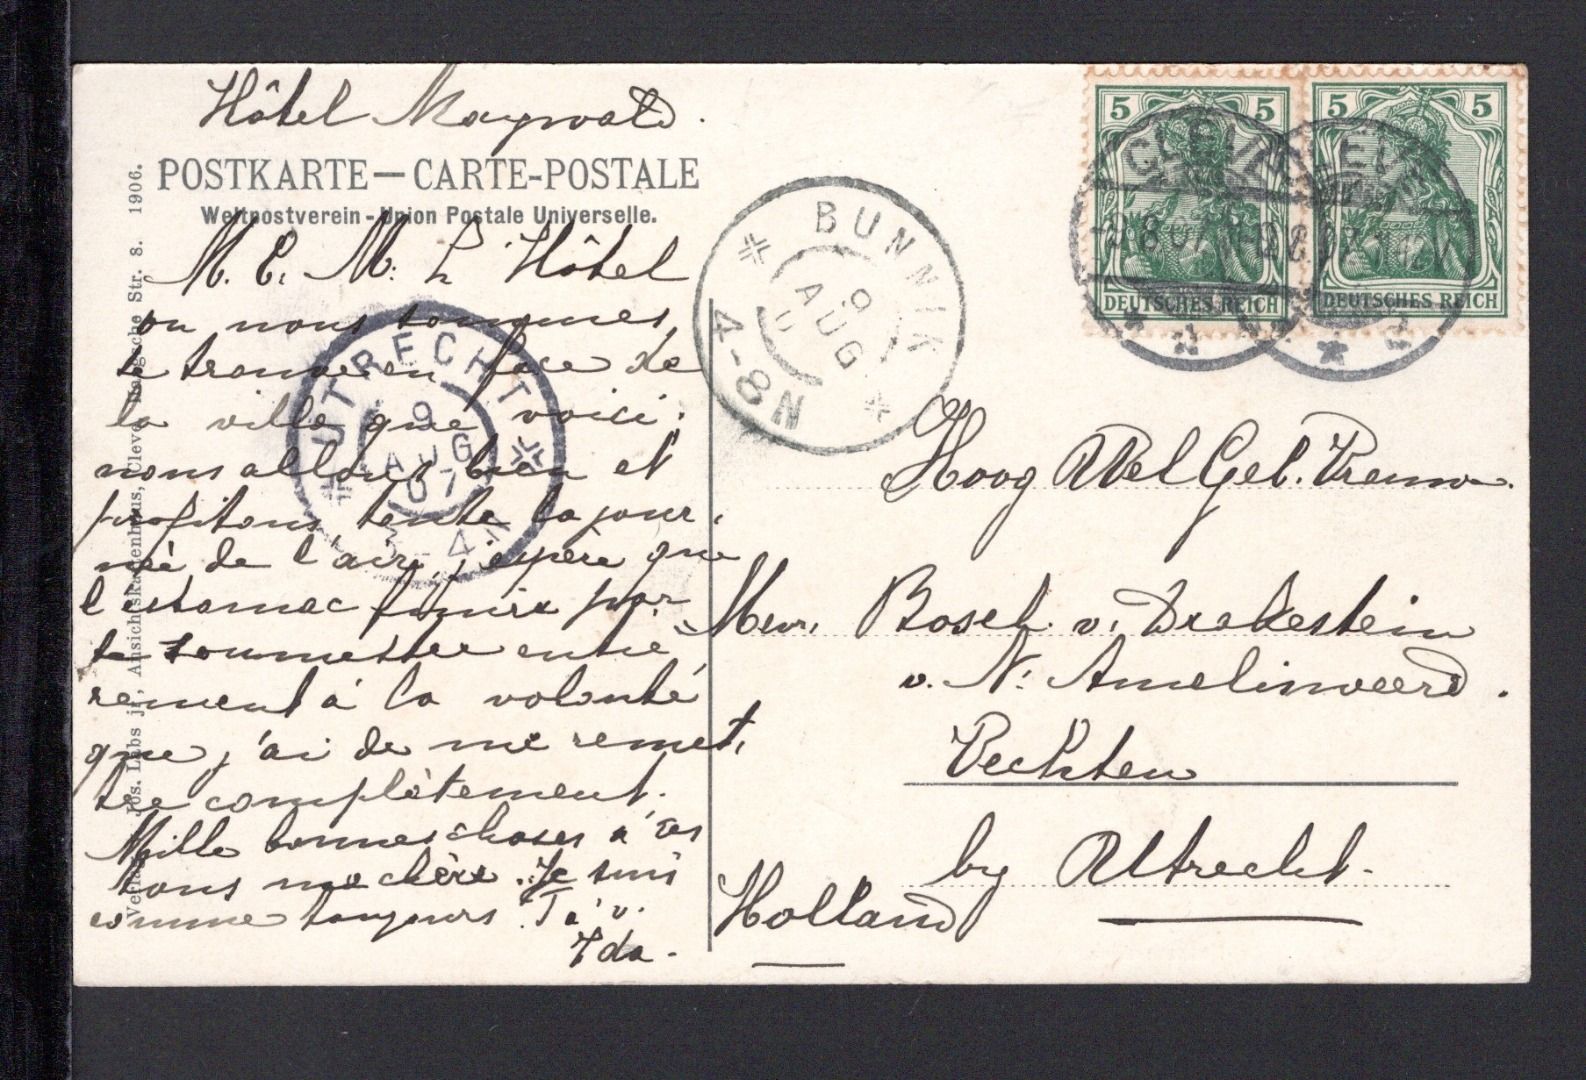 Hôtel Maywald.
POSTKARTE — CARTE-POSTALE
Weltpostverein - Union Postale Universelle.
M. E. M. L'Hôtel
ou nous sommes
se trouve en face de
la ville que voici;
nous allons bien et
profitons toute la jour
née de l'air, j'espère que
l'estomac finira par
se soumettre entiè
rement à la volonté
que j'ai de me remet
tre complètement.
Mille bonnes choses à
tous ma chère. Je suis
comme toujours T. à v.
Ida.
Verlag Jos. Labs jr., Ansichtskartenhaus, Cleve, Haag'sche Str. 8. 1906.
UTRECHT
9
AUG
07
3-4N
BUNNIK
9
AUG
07
4-8N
5 5
DEUTSCHES REICH
5 5
DEUTSCHES REICH
CLEVE
9.8.07
CLEVE
9.8.07
Hoog Wel Geb. Vrouwe.
Mevr. Bosch v. Drakestein
v. N: Amelisweerd.
Vechten
by Utrecht.
Holland